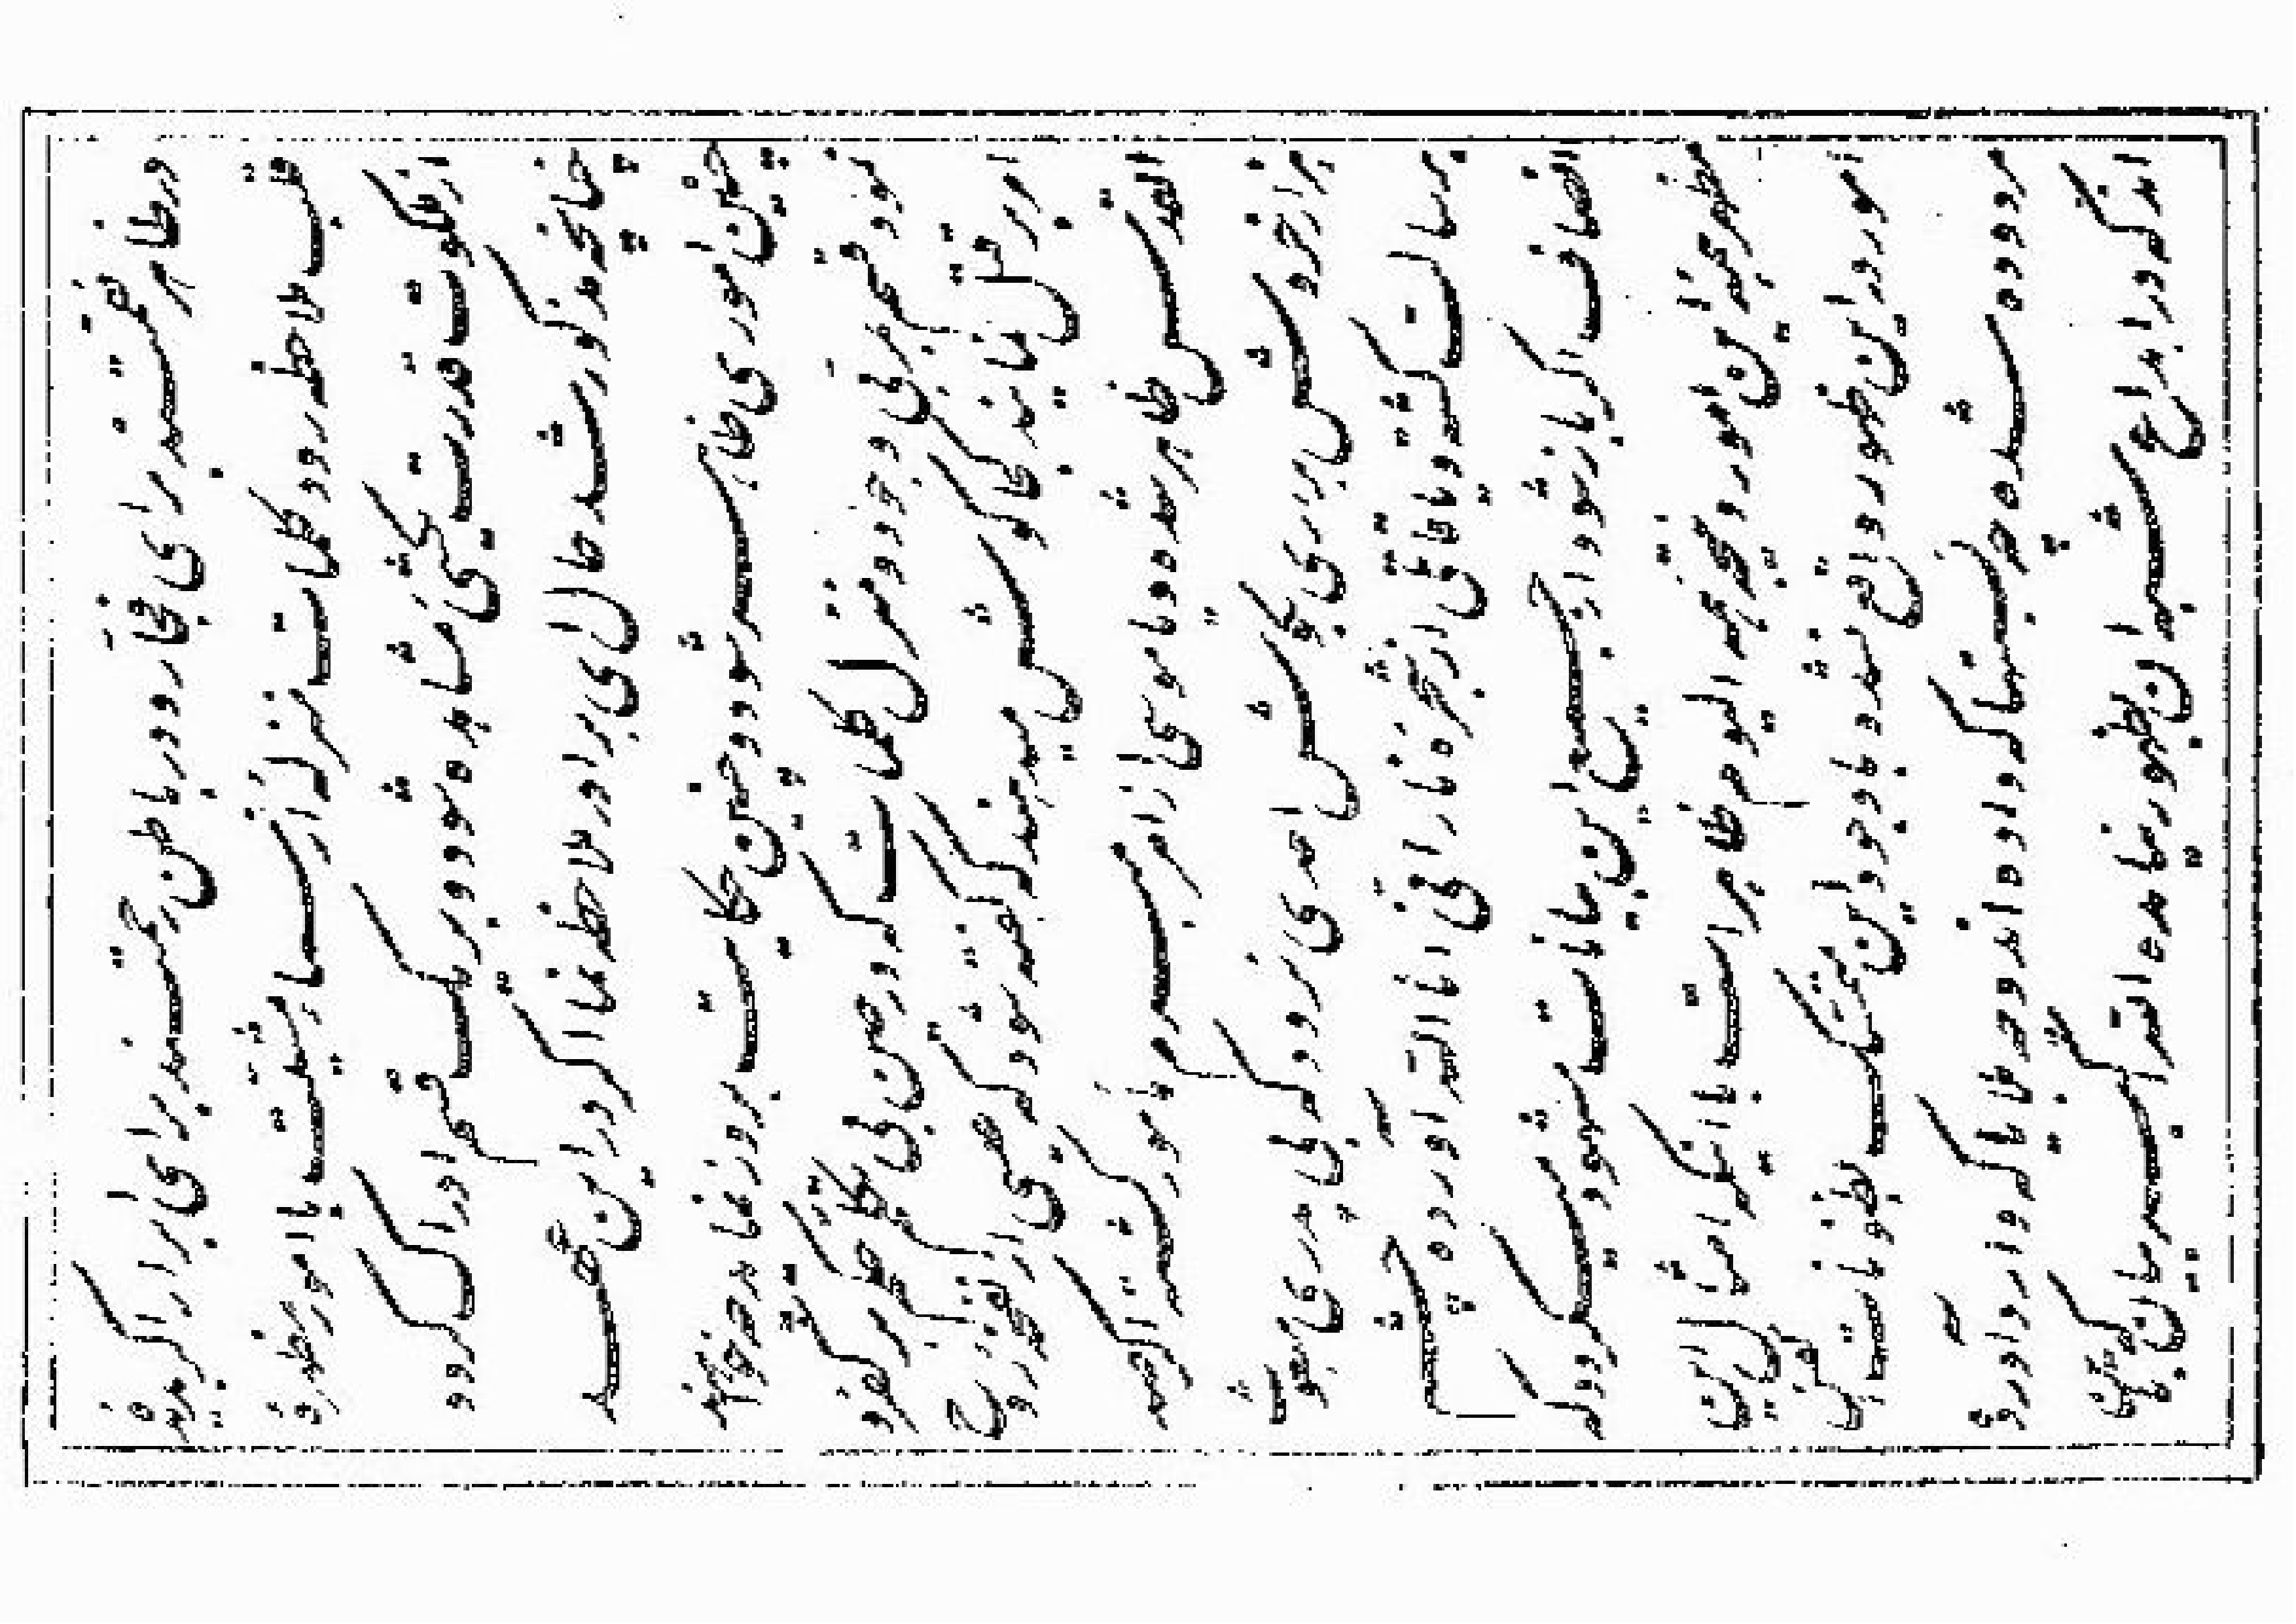 در ظاهر نقمتند برای فجار و در باطن رحمتند برای ابرار اگر بدیده
قلب ملاحظه رود کلمات منزله از سماء مشیت با امور ظهوریه
از ملکوت قدرت یکی مشاهده شود و بر یک قسم ادراک گردد
چنانچه مذکور شد حال ای برادر ملاحظه نما اگر در این عهد
چنین اموری ظاهر شود و چنین حکایات بروز نماید چه خواهند
نمود قسم بمربی وجود و منزل کلمات که در حین بی تکلم حکم بر کفر و
امر بر قتل نمایند کجا گوش میدهند که گفته شود که عیسی از نفخه روح
القدس ظاهر شده و یا موسی از امر مبرم مأمور گشته اگر صد
هزار خروش بر آری بگوش احدی نرود که بی پدری مبعوث
برسالت گشته و یا قاتلی از شجره نار انی انا الله آورده چشم
انصاف اگر باز شود از جمیع این بیانات مشهود گردد که
مظهر همه این امور و نتیجه آن الیوم ظاهر است با اینکه امثال این
امور در این ظهور واقع نشده با وجود این تمسک بظنونات انفس
مردوده شده چه نسبتها که داده اند و چه بلایا که وارد آورده
اند که در ابداع شبه آن ظهور ننموده الله اکبر بیان که باین